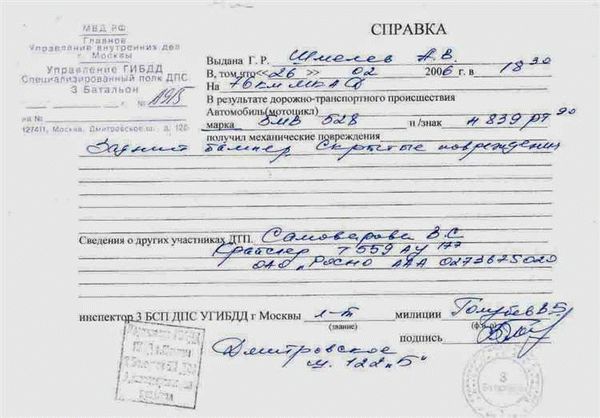 МВД РФ
Главное
Управление внутренних дел
г. Москвы
Управление ГИБДД
Специализированный полк ДПС
3 Батальон
г. №
на №
127411, Москва, Дмитровское ш. д. 122
СПРАВКА
Выдана Г. Р. Шмелев А.В.
В, том что<<26>> 02 2006 г. в 18 30
На 76 км МКАД
В результате дорожно-транспортного происшествия
Автомобиль(мотоцикл)
марка БМВ 528 н/знак н 839 рт 90
получил механические повреждения
Задний бампер. Скрытые повреждения
Сведения о других участниках ДТП. Самоверова В.С
Крайслер Т 559 АУ 177
ОАО "Росно ААА 0273675020
инспектор 3 БСП ДПС УГИБДД г Москвы л-т милиции Голубев В.Б.
(звание) (ф.и.о)
подпись
Дмитровское
ш. 122 "Б"
3